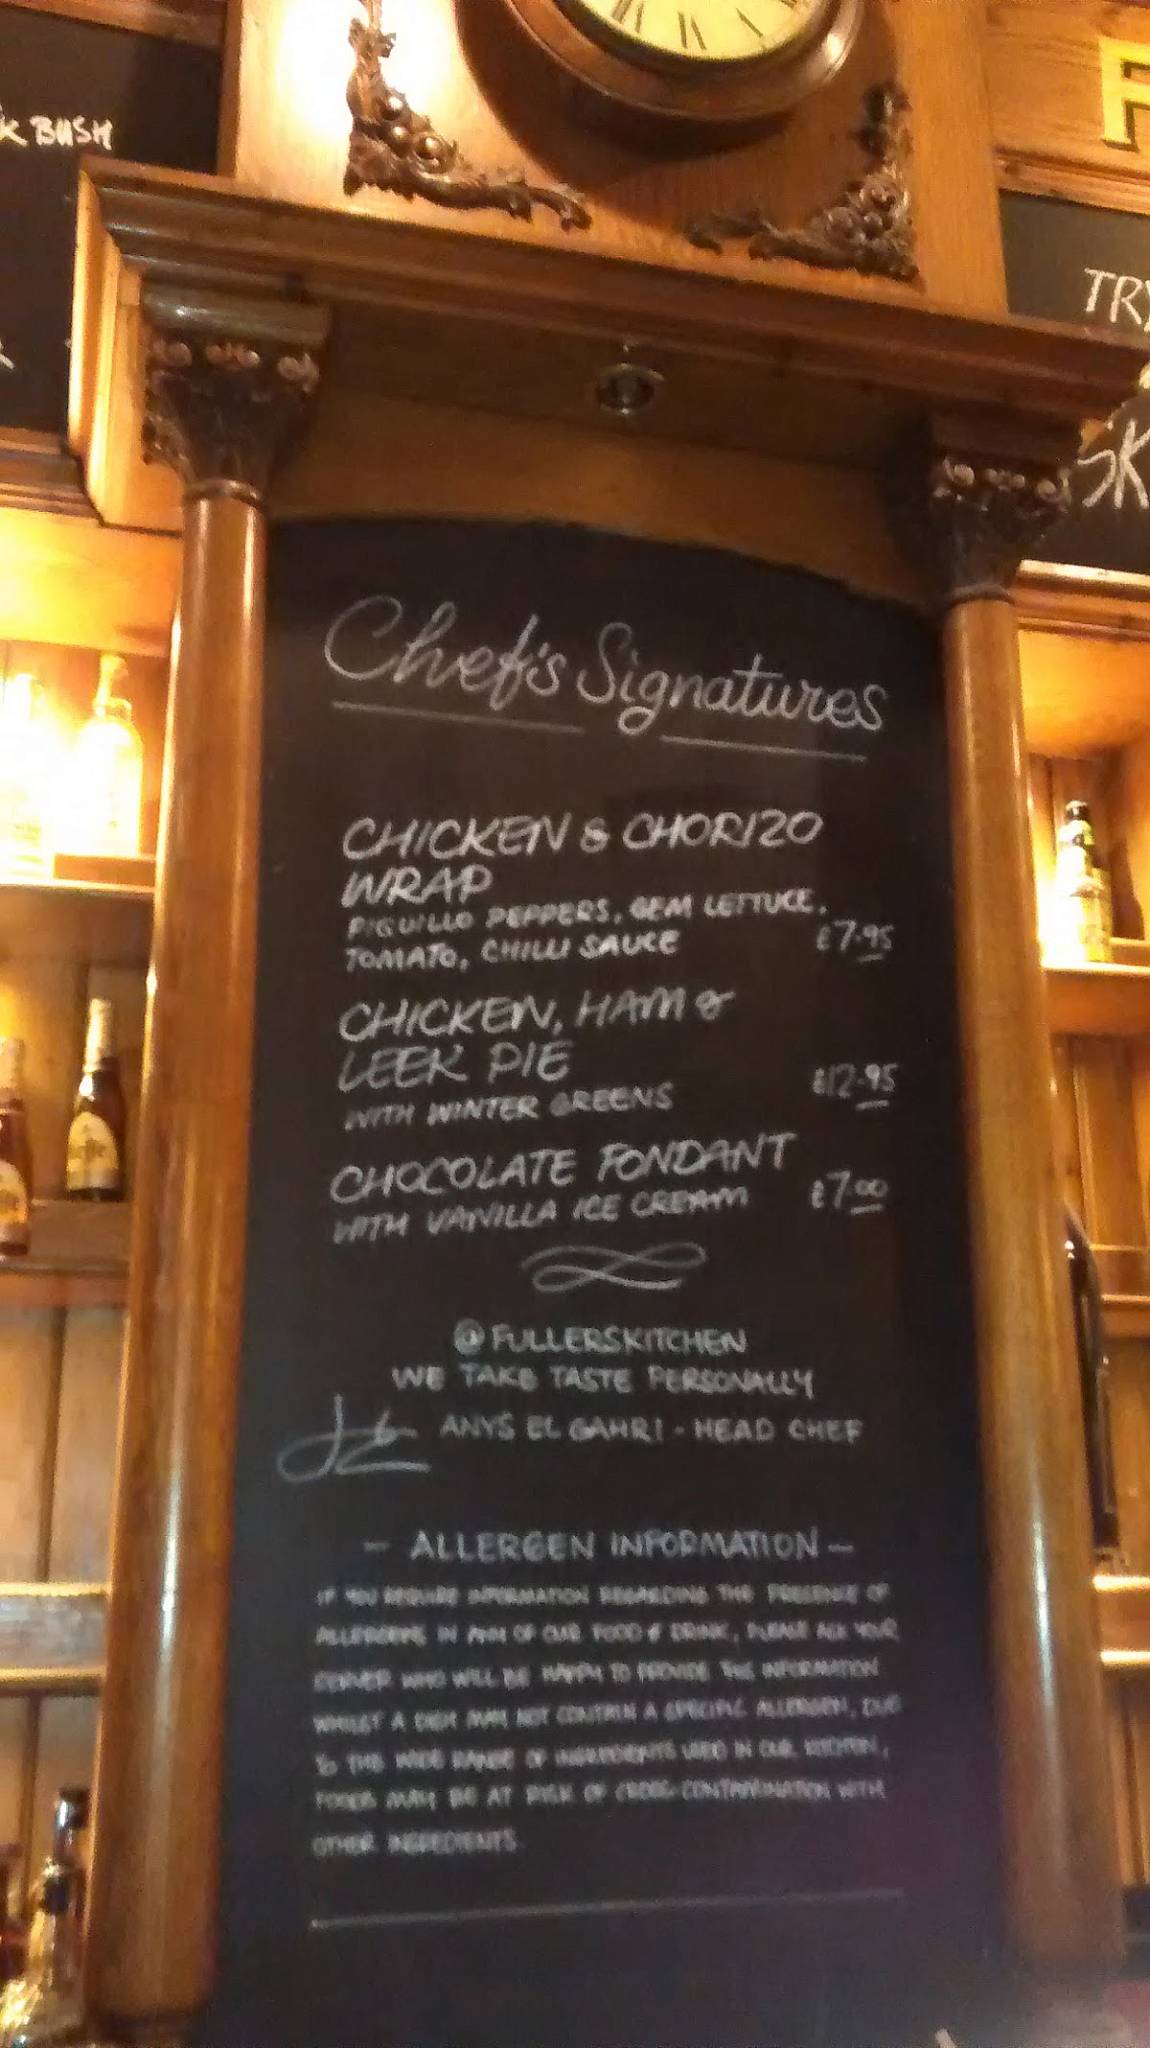 K BUSH
TR
SK
Chef's Signatures
CHICKEN & CHORIZO
WRAP
PIQUILLO PEPPERS, GEM LETTUCE,
TOMATO, CHILLI SAUCE £7.95
CHICKEN, HAM &
LEEK PIE
WITH WINTER GREENS £12.95
CHOCOLATE FONDANT
WITH VANILLA ICE CREAM £7.00
@FULLERSKITCHEN
WE TAKE TASTE PERSONALLY
ANYS EL GAHRI - HEAD CHEF
- ALLERGEN INFORMATION -
IF YOU REQUIRE INFORMATION REGARDING THE PRESENCE OF
ALLERGENS IN ANY OF OUR FOOD & DRINK, PLEASE ASK YOUR
SERVER WHO WILL BE HAPPY TO PROVIDE THE INFORMATION
WHILST A DISH MAY NOT CONTAIN A SPECIFIC ALLERGEN, DUE
TO THE WIDE RANGE OF INGREDIENTS USED IN OUR KITCHEN,
FOODS MAY BE AT RISK OF CROSS-CONTAMINATION WITH
OTHER INGREDIENTS.